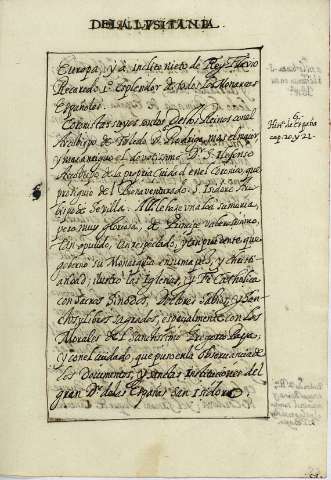 DE LA LVSITANIA.
Europa, y à inclito nieto de Rey Flavio
Recaredo 1º esplendor de todos los Monarcas
Españoles.
Coronistas suyos por los Reinos con el
Arçobispo de Toledo D. Rodrigo, mas el mayor
y mas antiguo el devotissimo Dr. S. Ilefonso
Arçobispo de la propria Ciudad en el Coronico, que
prosiguió del Bienaventurado S. Isidoro Arço
bispo de Sevilla. Allí le haze una loa sumaria,
pero muy gloriosa, de Principe valerosissimo,
tan opuido, tan respetado, y tan prudente que
governo su Monarquia en suma paz, y christi
andad; ilustró las Iglesias, y Fe Catholica
con Sacros Sinodos, Dotores sabios, y San
chos libros sagrados, especialmente con los
Morales de el Sanctissimo Gregorio Papa,
y con el cuidado, que puso en la observancia de
los Documentos, y sanctas Instituciones del
gran Dr. de las Españas San Isidoro.
6.
Hist. de España
cap. 20 y 21.